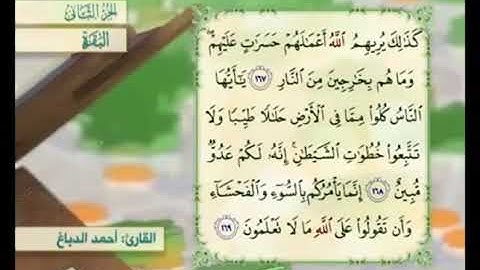 الجزء الثاني
البقرة
كَذَٰلِكَ يُرِيهِمُ اللَّهُ أَعْمَٰلَهُمْ حَسَرَٰتٍ عَلَيْهِمْ
وَمَا هُم بِخَٰرِجِينَ مِنَ النَّارِ ١٦٧ يَٰٓأَيُّهَا
النَّاسُ كُلُوا مِمَّا فِي الْأَرْضِ حَلَٰلًا طَيِّبًا وَلَا
تَتَّبِعُوا خُطُوَٰتِ الشَّيْطَٰنِ إِنَّهُ لَكُمْ عَدُوٌّ
مُّبِينٌ ١٦٨ إِنَّمَا يَأْمُرُكُم بِالسُّوءِ وَالْفَحْشَاءِ
وَأَن تَقُولُوا عَلَى اللَّهِ مَا لَا تَعْلَمُونَ ١٦٩
القارئ: أحمد الدباغ